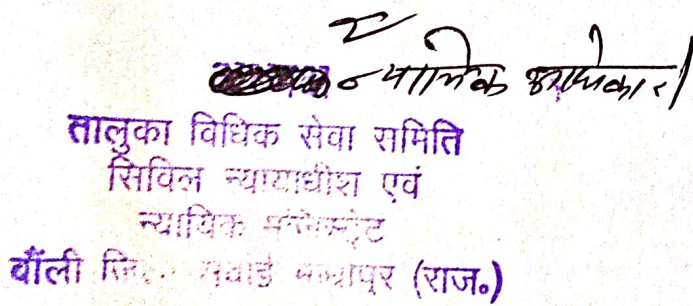 न्यायिक अधिकारी
तालुका विधिक सेवा समिति
सिविल न्यायाधीश एवं
न्यायिक मजिस्ट्रेट
बौंली जिला सवाई माधोपुर (राज॰)